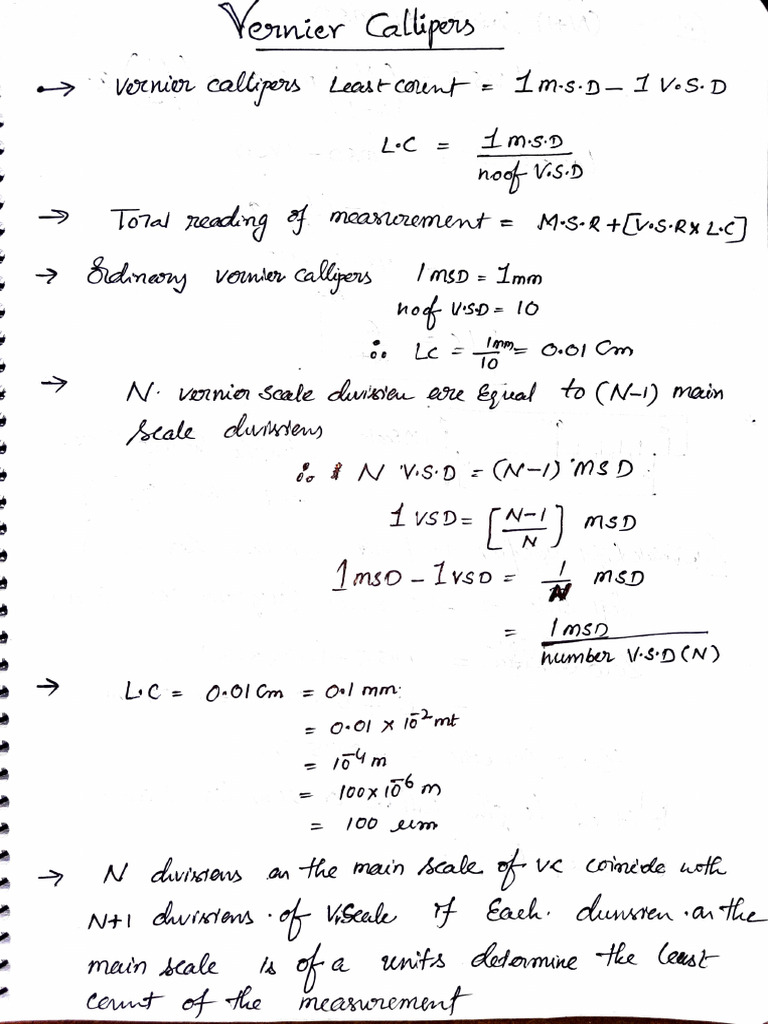 Vernier Callipers
→ Vernier callipers Least count = 1 m.s.D – 1 V.S.D
L.C = 1 m.s.D / no of V.S.D
→ Total reading of measurement = M.S.R + [V.S.R x L.C]
→ Ordinary vernier callipers 1 MSD = 1mm
no of V.S.D = 10
∴ LC = 1mm / 10 = 0.01 Cm
→ N. vernier scale division are Equal to (N-1) main
scale divisions
∴ N V.S.D = (N-1) MSD
1 VSD = [N-1 / N] MSD
1 MSD – 1 VSD = 1 / N MSD
= 1 MSD / number V.S.D (N)
→ L.C = 0.01 Cm = 0.1 mm
= 0.01 x 10⁻² mt
= 10⁻⁴ m
= 100 x 10⁻⁶ m
= 100 um
→ N divisions on the main scale of VC coincide with
N+1 divisions of V.scale if Each division on the
main scale is of a units determine the least
count of the measurement